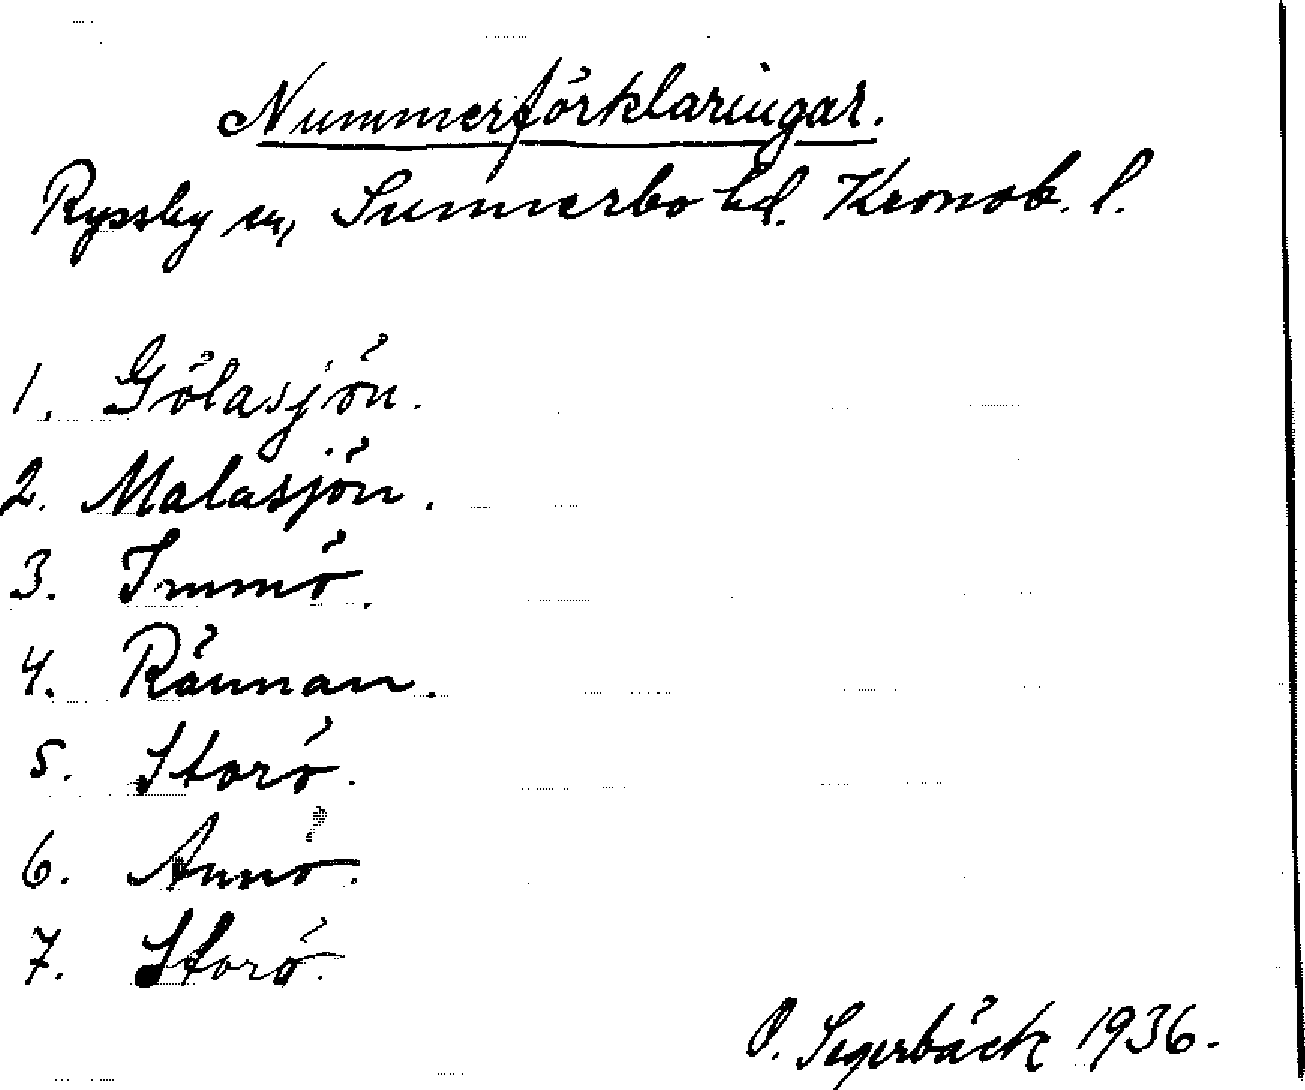 Nummerförklaringar.
Ryssby sn, Sunnerbo hd. Kronob. l.
1. Gölasjön.
2. Malasjön.
3. Immö.
4. Rännan.
5. Storö.
6. Annö.
7. Storö.
P. Segerbäck 1936.